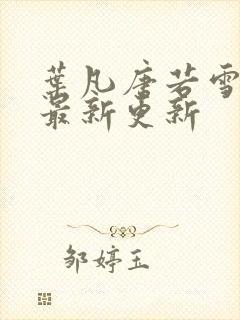 葉凡唐若雪
最新更新
邹婷玉